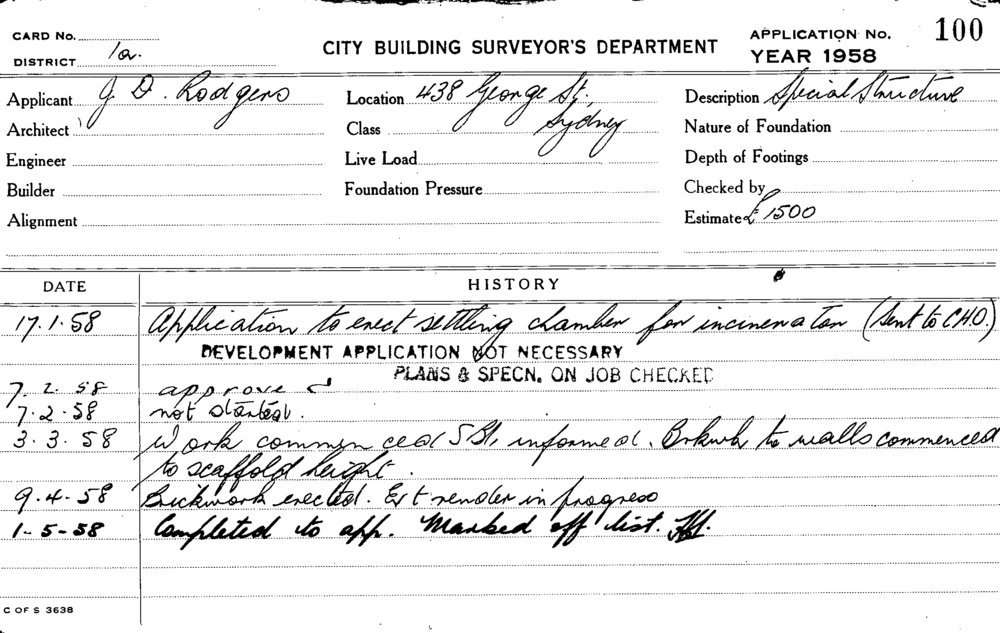 CARD No.
DISTRICT 1a.
CITY BUILDING SURVEYOR'S DEPARTMENT
APPLICATION No. 100
YEAR 1958
Applicant J. D. Rodgers
Location 438 George St., Sydney
Description Special Structure
Architect
Class
Nature of Foundation
Engineer
Live Load
Depth of Footings
Builder
Foundation Pressure
Checked by
Alignment
Estimate £ 1500
DATE
HISTORY
17.1.58 Application to erect settling chamber for incinerator (Sent to C.H.O.)
DEVELOPMENT APPLICATION NOT NECESSARY
PLANS & SPECN. ON JOB CHECKED
7.2.58 approved
7.2.58 not started.
3.3.58 Work commenced informed. Brkwk to walls commenced
to scaffold height.
9.4.58 Brickwork erected. Ext render in progress
1-5-58 Completed to app. Marked off list.
C OF S 3638